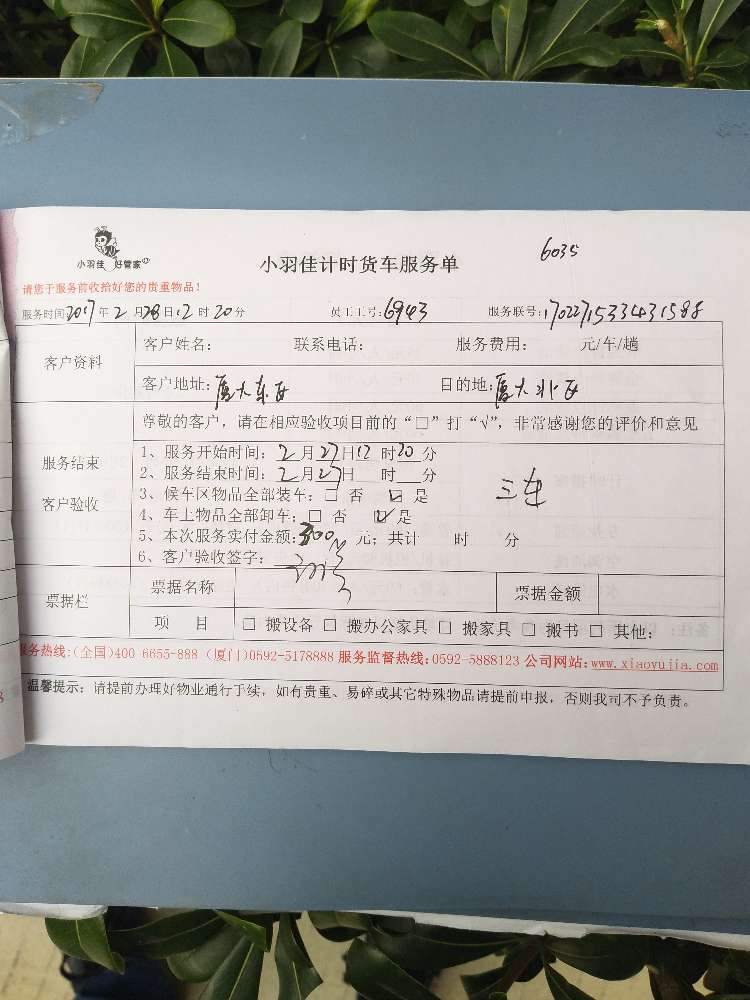 6035
小羽佳 好管家
小羽佳计时货车服务单
请您于服务前收拾好您的贵重物品！
服务时间2017年2月28日12时20分 员工工号：6943 服务联号：1702271533431588
客户资料 客户姓名： 联系电话： 服务费用： 元/车/趟
客户地址：厦大东区 目的地：厦大北区
尊敬的客户，请在相应验收项目前的“□”打“√”，非常感谢您的评价和意见
服务结束
客户验收
1、服务开始时间：2月27日12时20分
2、服务结束时间：2月27日 时 分
3、候车区物品全部装车：□ 否 ☑ 是
三车
4、车上物品全部卸车：□ 否 ☑ 是
5、本次服务实付金额：300 元；共计 时 分
6、客户验收签字：
票据栏 票据名称 票据金额
项 目 □ 搬设备 □ 搬办公家具 □ 搬家具 □ 搬书 □ 其他：
服务热线：(全国)400-6655-888 (厦门)0592-5178888 服务监督热线：0592-5888123 公司网站：www.xiaoyujia.com
温馨提示：请提前办理好物业通行手续，如有贵重、易碎或其它特殊物品请提前申报，否则我司不予负责。